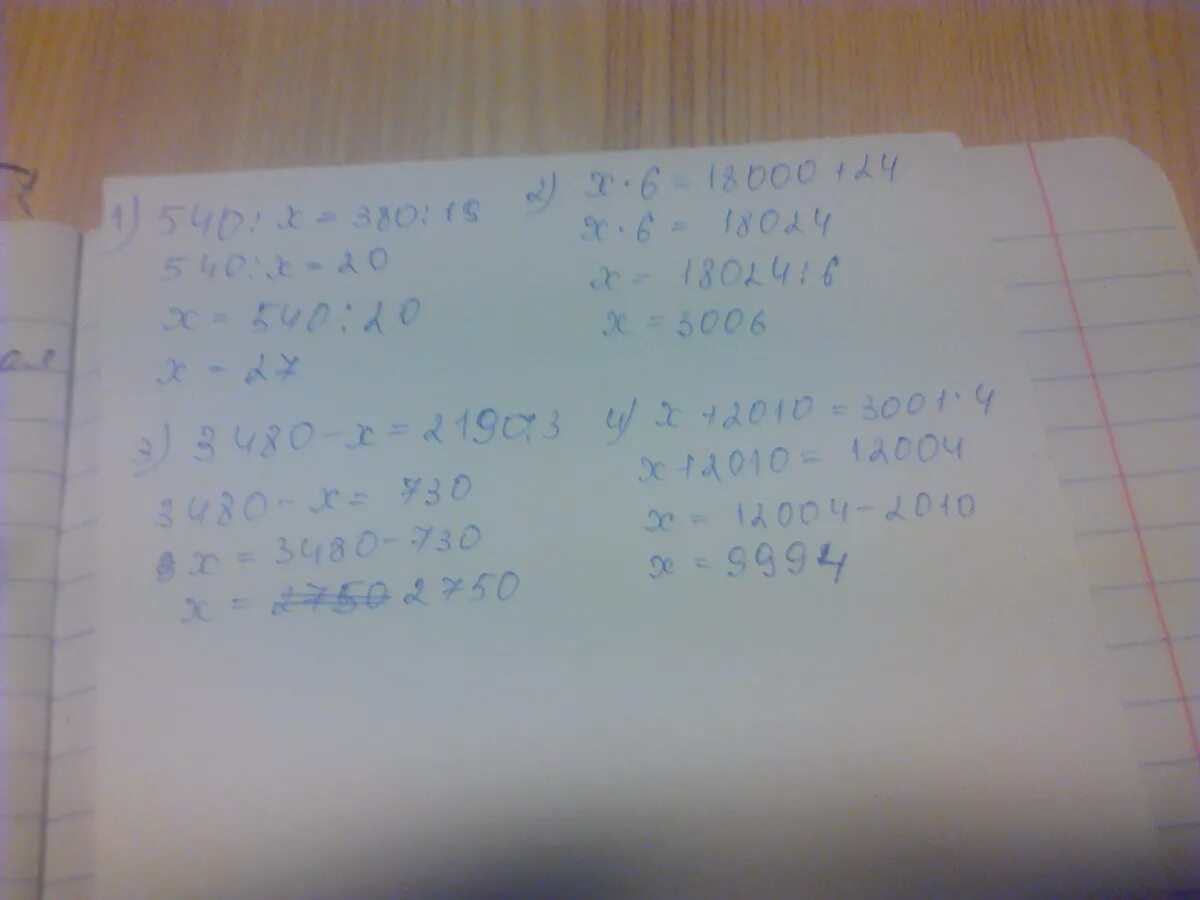 1) 540 : x = 380 : 19
540 : x = 20
x = 540 : 20
x = 27
2) x · 6 = 18000 + 24
x · 6 = 18024
x = 18024 : 6
x = 3006
3) 3480 - x = 2190 : 3
3480 - x = 730
x = 3480 - 730
x = 2750 2750
4) x + 2010 = 3001 · 4
x + 2010 = 12004
x = 12004 - 2010
x = 9994